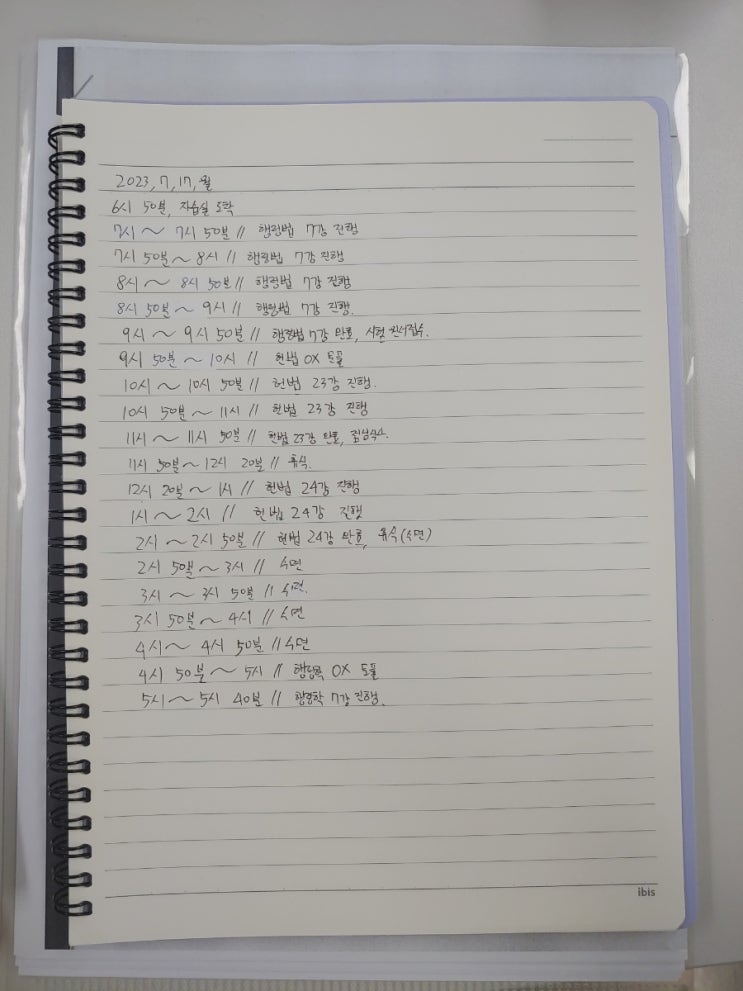 2023, 7, 17, 월
6시 50분, 자습실 도착
7시 ~ 7시 50분 // 행정법 7강 진행
7시 50분 ~ 8시 // 행정법 7강 진행
8시 ~ 8시 50분 // 행정법 7강 진행
8시 50분 ~ 9시 // 행정법 7강 진행.
9시 ~ 9시 50분 // 행정법 7강 완료, 시험 원서접수.
9시 50분 ~ 10시 // 헌법 OX 문풀
10시 ~ 10시 50분 // 헌법 23강 진행.
10시 50분 ~ 11시 // 헌법 23강 진행
11시 ~ 11시 50분 // 헌법 23강 완료, 점심식사.
11시 50분 ~ 12시 20분 // 휴식.
12시 20분 ~ 1시 // 헌법 24강 진행
1시 ~ 2시 // 헌법 24강 진행
2시 ~ 2시 50분 // 헌법 24강 완료, 휴식(수면)
2시 50분 ~ 3시 // 수면
3시 ~ 3시 50분 // 수면.
3시 50분 ~ 4시 // 수면
4시 ~ 4시 50분 // 수면
4시 50분 ~ 5시 // 행정학 OX 문풀
5시 ~ 5시 40분 // 행정학 7강 진행.
ibis